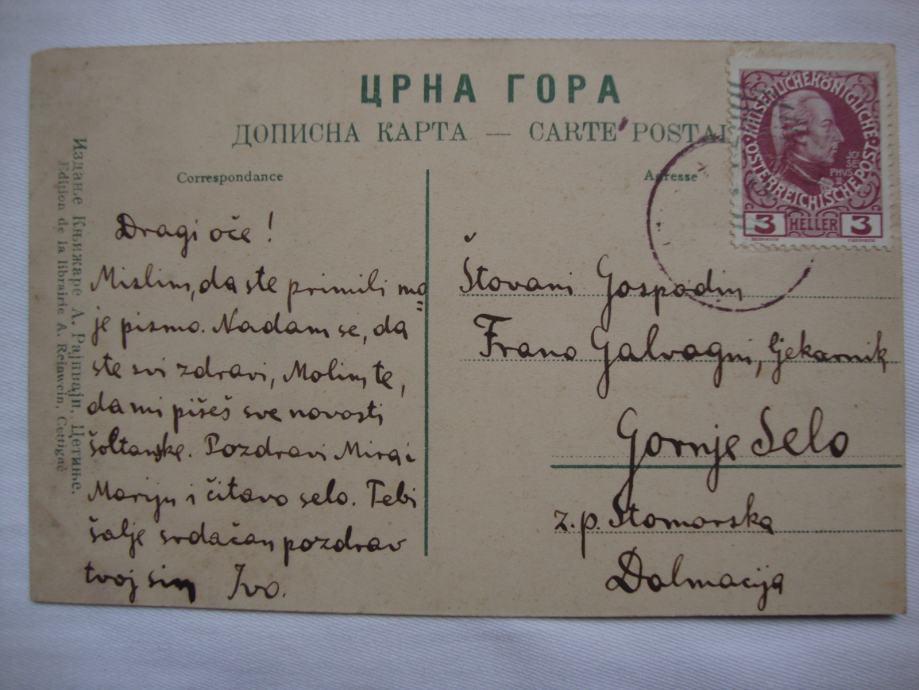 ЦРНА ГОРА
ДОПИСНА КАРТА — CARTE POSTAL
Correspondance
Adresse
KAISERLICHEKÖNIGLICHE
ÖSTERREICHISCHEPOST
JO
SE
PHVS
3 HELLER 3
Dragi oče!
Mislim, da ste primili mo=
je pismo. Nadam se, da
ste svi zdravi, Molim te,
da mi pišeš sve novosti
šoltanske. Pozdravi Miru i
Mariju i čitavo selo. Tebi
šalje srdačan pozdrav
tvoj sin Ivo.
Štovani Gospodin
Frano Galvagni, ljekarnik
Gornje Selo
z.p. Stomorska
Dalmacija
Издање Књижаре А. Рајнвајн, Цетиње.
Edition de la librairie A. Reinwein, Cettigné